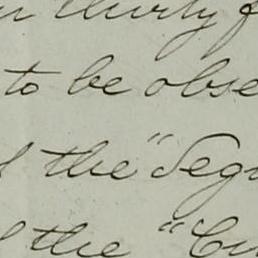 thirty
to be obse
the "Segu
the "Cu